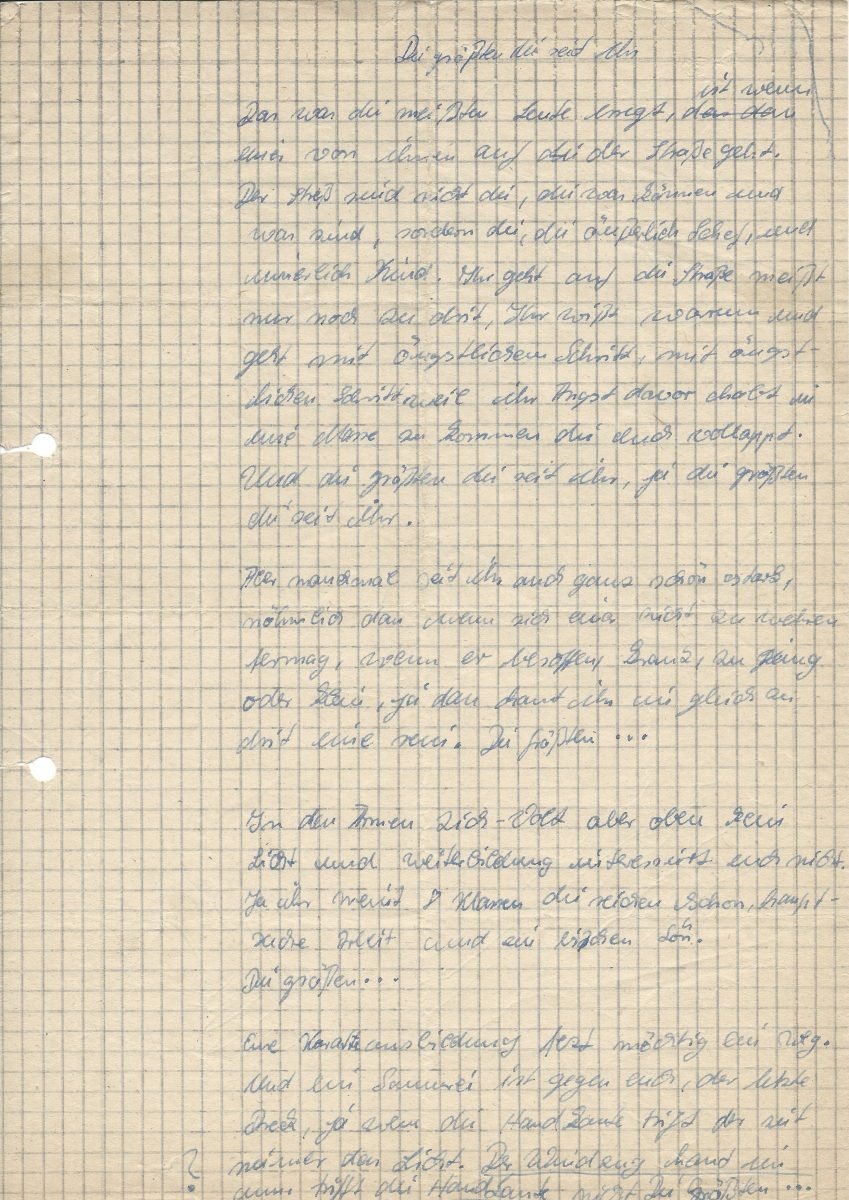 Die größten die seit Ihr
ist wenn
Das was die meißten Leute erregt, das dan
einer von ihnen auf die der Straße geht.
Der Streß sind nicht die, die was können und
was sind, sondern die, die äußerlich Schef, und
innerlich Kind. Ihr geht auf die Straße meißt
nur noch zu drit, Ihr wißt warum und
geht mit ängstlichem Schritt, mit ängst-
lichen Schritt weil ihr Angst davor habt in
eine Masse zu kommen die euch vollappt.
Und die größten die seit ihr, ja die größten
die seit Ihr.
Aber manchmal seit ihr auch ganz schön stark,
nähmlich dan wenn sich einer nicht zu wehren
fermag, wenn er besoffen, krank, zu
oder klein, ja dan haut ihr im gleich zu
drit eine rein. Die größten ...
In den Armen zich-Volt aber oben kein
Licht und weiterbildung interessiert euch nicht.
Ja ihr meint 8 Klassen die reichen schon, haupt-
sache Arbeit und ein bischen Lön.
Die größten ...
Eine Karateausbildung fezt mächtig ein weg.
Und ein Samurei ist gegen euch, der letzte
Dreck, ja wenn die Handkante trift der seit
nimmer das Licht. Der
? trifft die Handkante nicht Die Größten ...